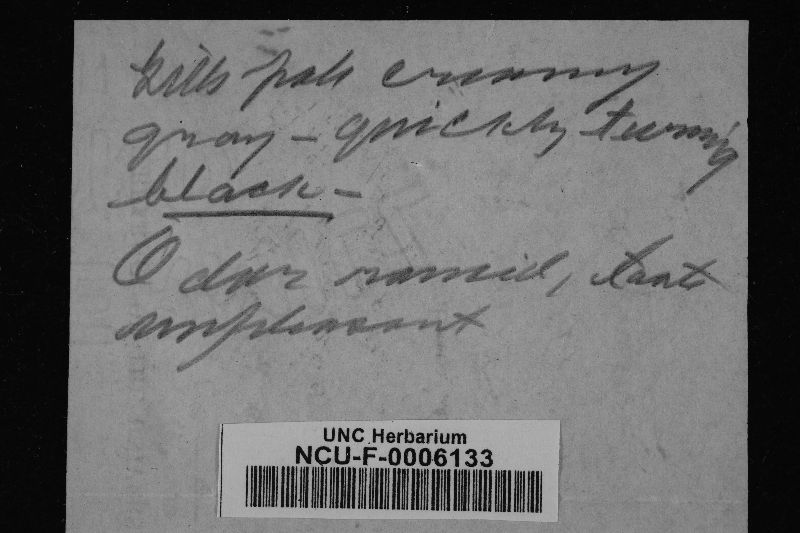 Gills pale creamy
gray - quickly turning
black -
Odor rancid, taste
unpleasant
UNC Herbarium
NCU-F-0006133